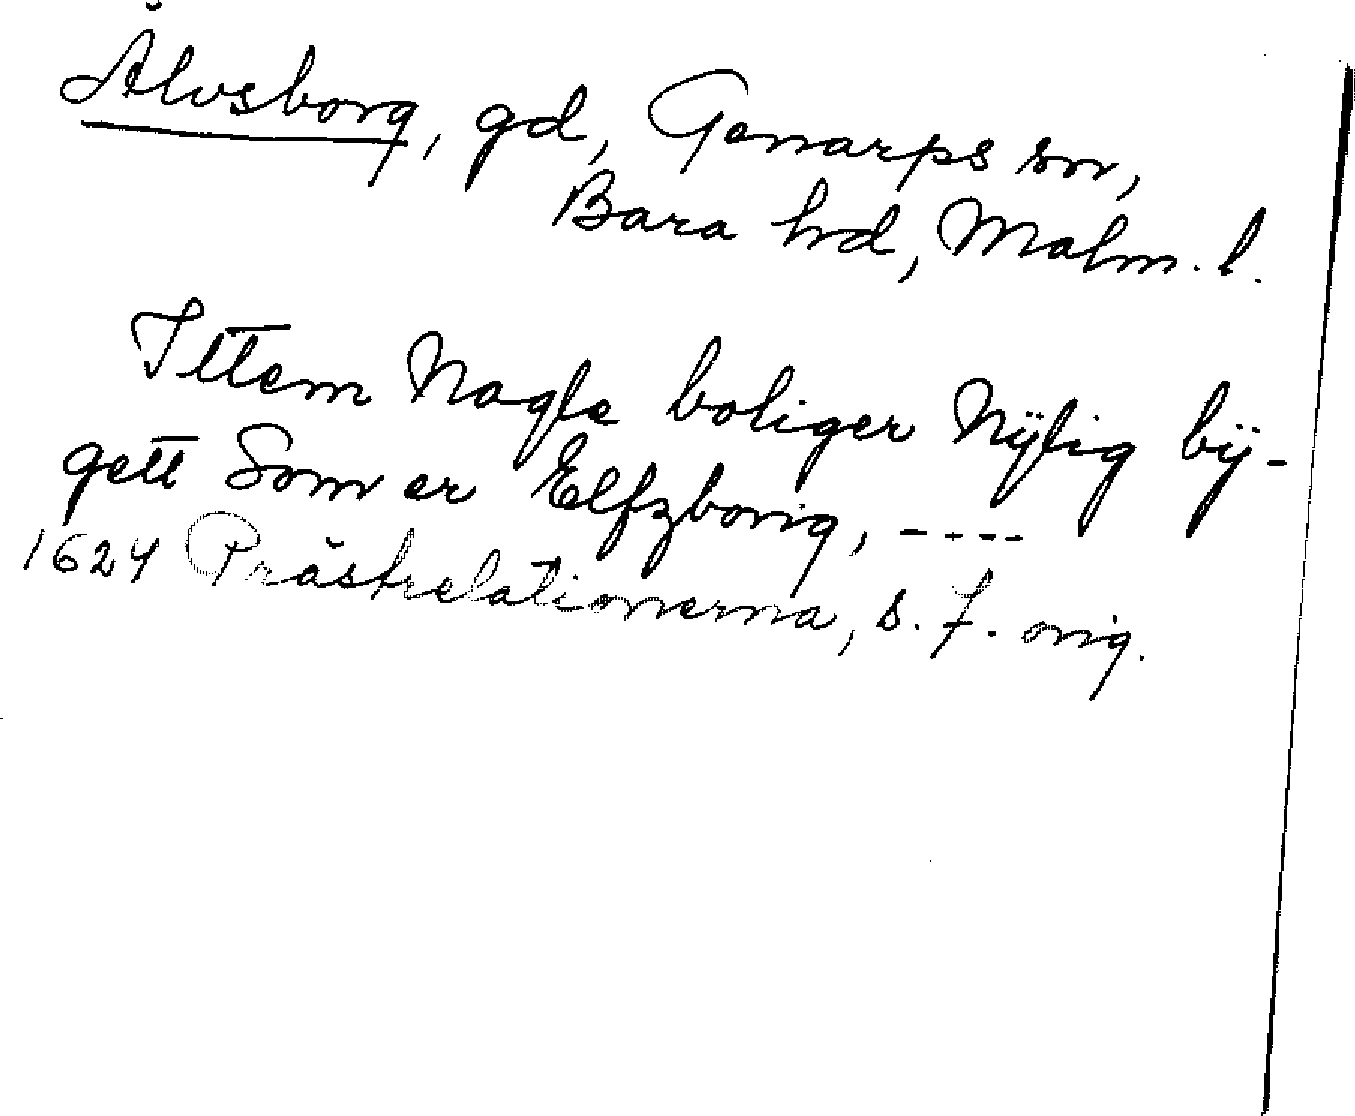 Älvsborg, gd, Genarps sn,
Bara hd, Malm. l.
Ittem Nogle boliger Nÿlig bÿ-
gett Som er Elfzborig, ----
1624 Prästrelationerna, s. 7. orig.